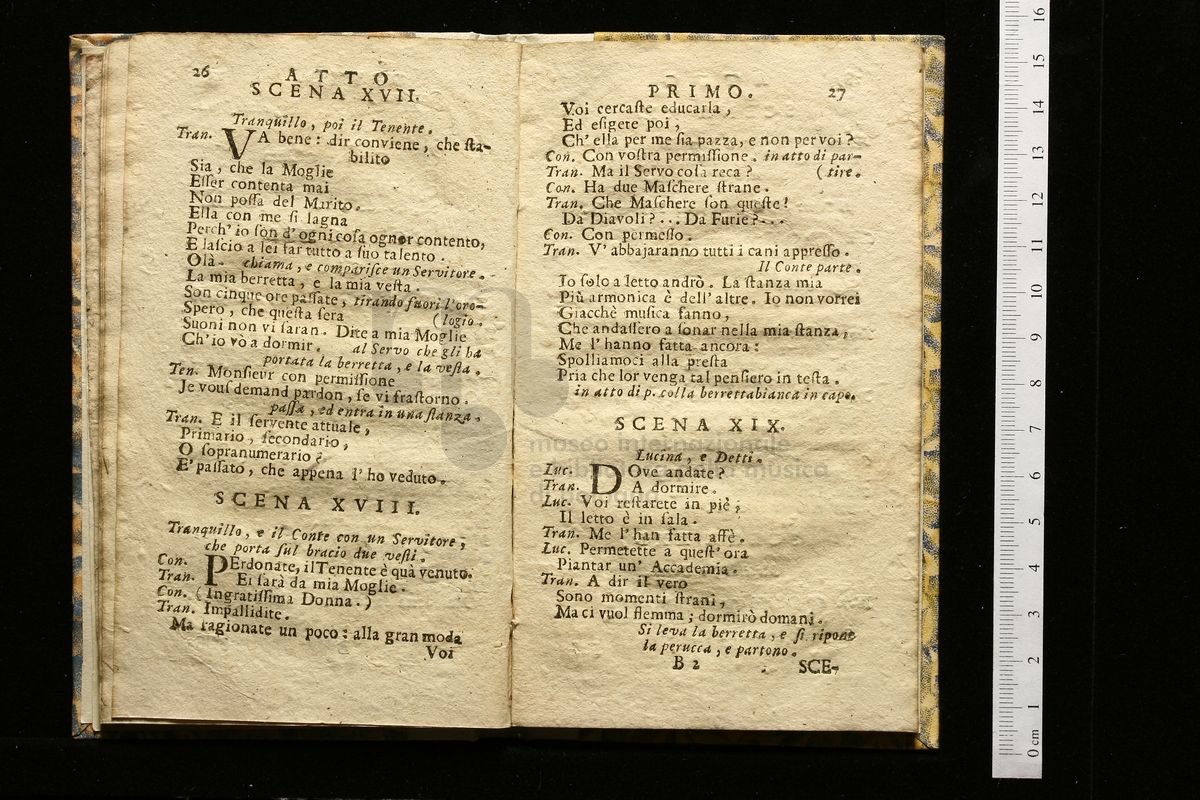 26
ATTO
SCENA XVII.
Tranquillo, poi il Tenente.
Tran. VA bene: dir conviene, che ſta-
bilito
Sia, che la Moglie
Eſſer contenta mai
Non poſſa del Marito.
Ella con me ſi lagna
Perch' io ſon d' ogni coſa ognor contento,
E laſcio a lei far tutto a ſuo talento.
Olà- chiama, e compariſce un Servitore.
La mia berretta, e la mia veſta.
Son cinque ore paſſate, tirando fuori l'oro-
Spero, che queſta ſera (logio.
Suoni non vi ſaran. Dite a mia Moglie
Ch'io vò a dormir. al Servo che gli ha
portata la berretta, e la veſta.
Ten. Monſieur con permiſſione
Je vous demand pardon, ſe vi fraſtorno.
paſſa, ed entra in una ſtanza.
Tran. E il ſervente attuale,
Primario, ſecondario,
O ſopranumerario?
E' paſſato, che appena l' ho veduto.
SCENA XVIII.
Tranquillo, e il Conte con un Servitore,
che porta ſul bracio due veſti.
Con. PErdonate, il Tenente è quà venuto.
Tran. Ei ſarà da mia Moglie.
Con. (Ingratiſſima Donna.)
Tran. Impallidite.
Ma ragionate un poco: alla gran moda
Voi
PRIMO. 27
Voi cercaſte educarla,
Ed eſigete poi,
Ch' ella per me ſia pazza, e non per voi?
Con. Con voſtra permiſſione. in atto di par-
Tran. Ma il Servo coſa reca? (tire.
Con. Ha due Maſchere ſtrane.
Tran. Che Maſchere ſon queſte!
Da Diavoli?... Da Furie?...
Con. Con permeſſo.
Tran. V' abbajaranno tutti i cani appreſſo.
Il Conte parte.
Io ſolo a letto andrò. La ſtanza mia
Più armonica è dell' altre. Io non vorrei
Giacchè muſica fanno,
Che andaſſero a ſonar nella mia ſtanza,
Me l' hanno fatta ancora:
Spolliamoci alla preſta
Pria che lor venga tal penſiero in teſta.
in atto di p. colla berretta bianca in capo.
SCENA XIX.
Lucina, e Detti.
Luc. DOve andate?
Tran. A dormire.
Luc. Voi reſtarete in piè,
Il letto è in ſala.
Tran. Me l' han fatta affè.
Luc. Permetette a queſt' ora
Piantar un' Accademia.
Tran. A dir il vero
Sono momenti ſtrani,
Ma ci vuol flemma; dormirò domani.
Si leva la berretta, e ſi ripone
la perucca, e partono.
B 2 SCE-
museo internazionale
e biblioteca della musica
0 cm 1 2 3 4 5 6 7 8 9 10 11 12 13 14 15 16